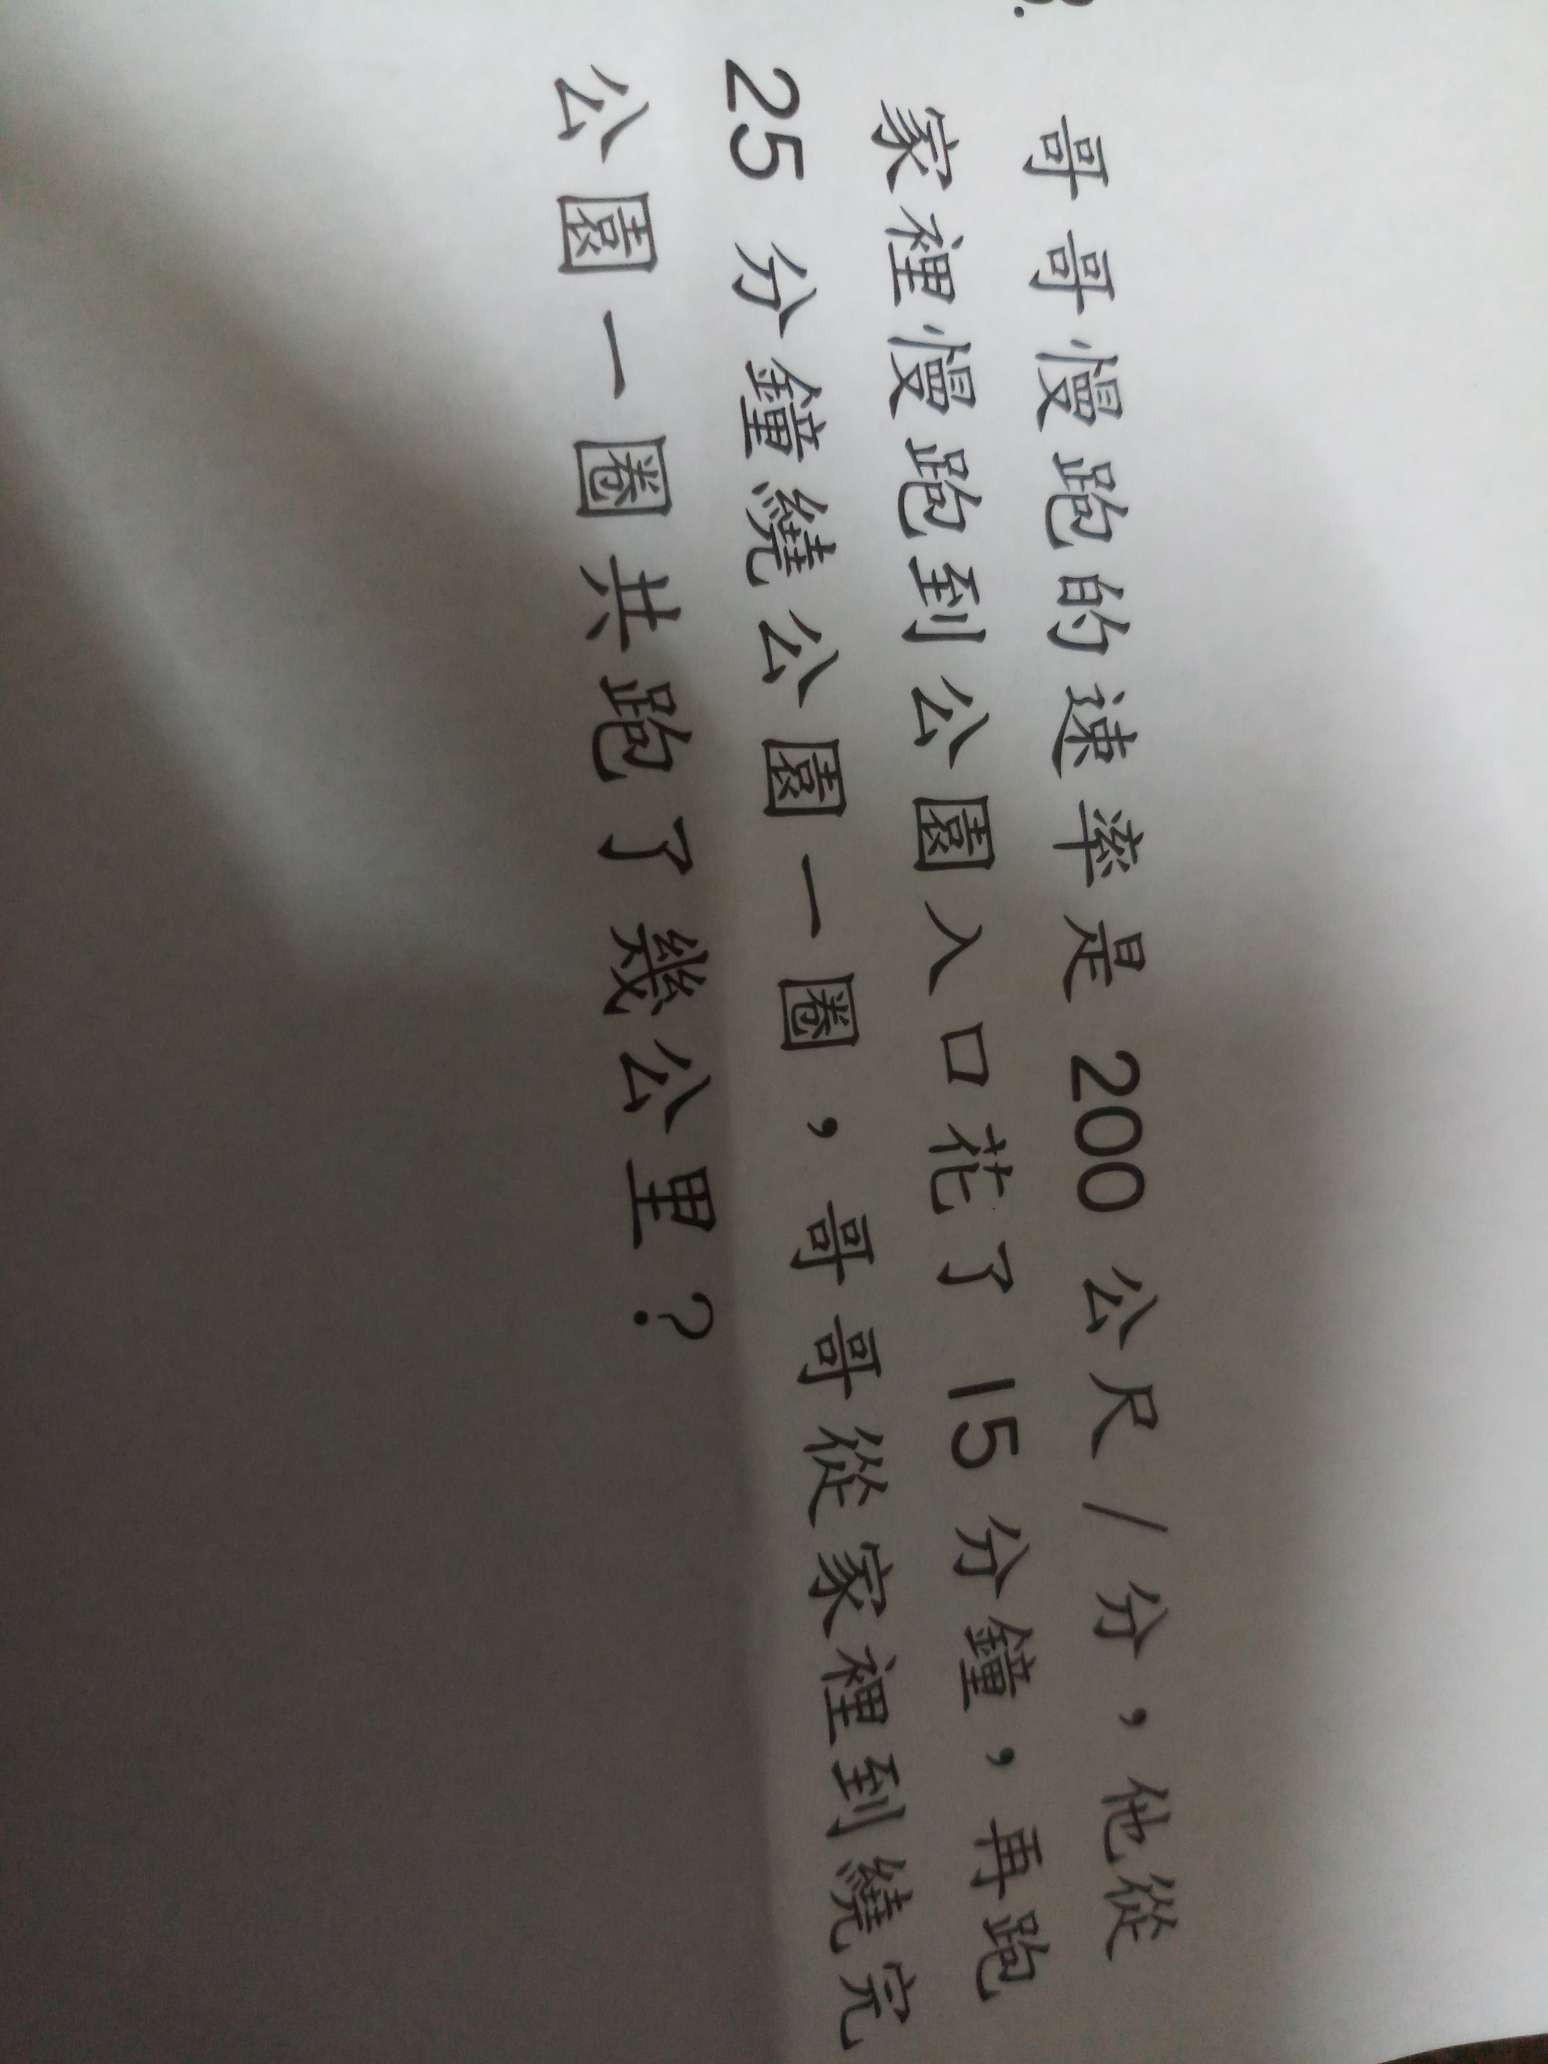 哥哥慢跑的速率是 200 公尺/分，他從
家裡慢跑到公園入口花了 15 分鐘，再跑
25 分鐘繞公園一圈，哥哥從家裡到繞完
公園一圈共跑了幾公里？